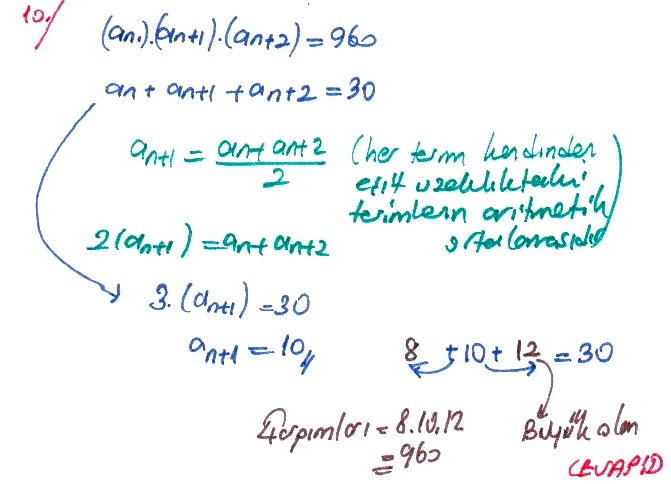 10./
(an).(an+1).(an+2) = 960
an + an+1 + an+2 = 30
an+1 = an + an+2 / 2 (her term kendinden
eşit uzaklıktaki
terimlerin aritmetik
ortalamasıdır)
2(an+1) = an + an+2
3.(an+1) = 30
an+1 = 10//
8 + 10 + 12 = 30
Çarpımları = 8.10.12
= 960
Büyük olan
CEVAP D